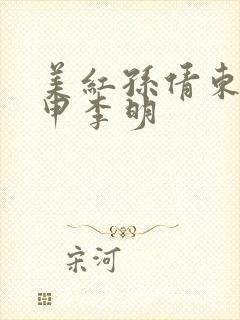 美红孙倩东
甲李明
宋河